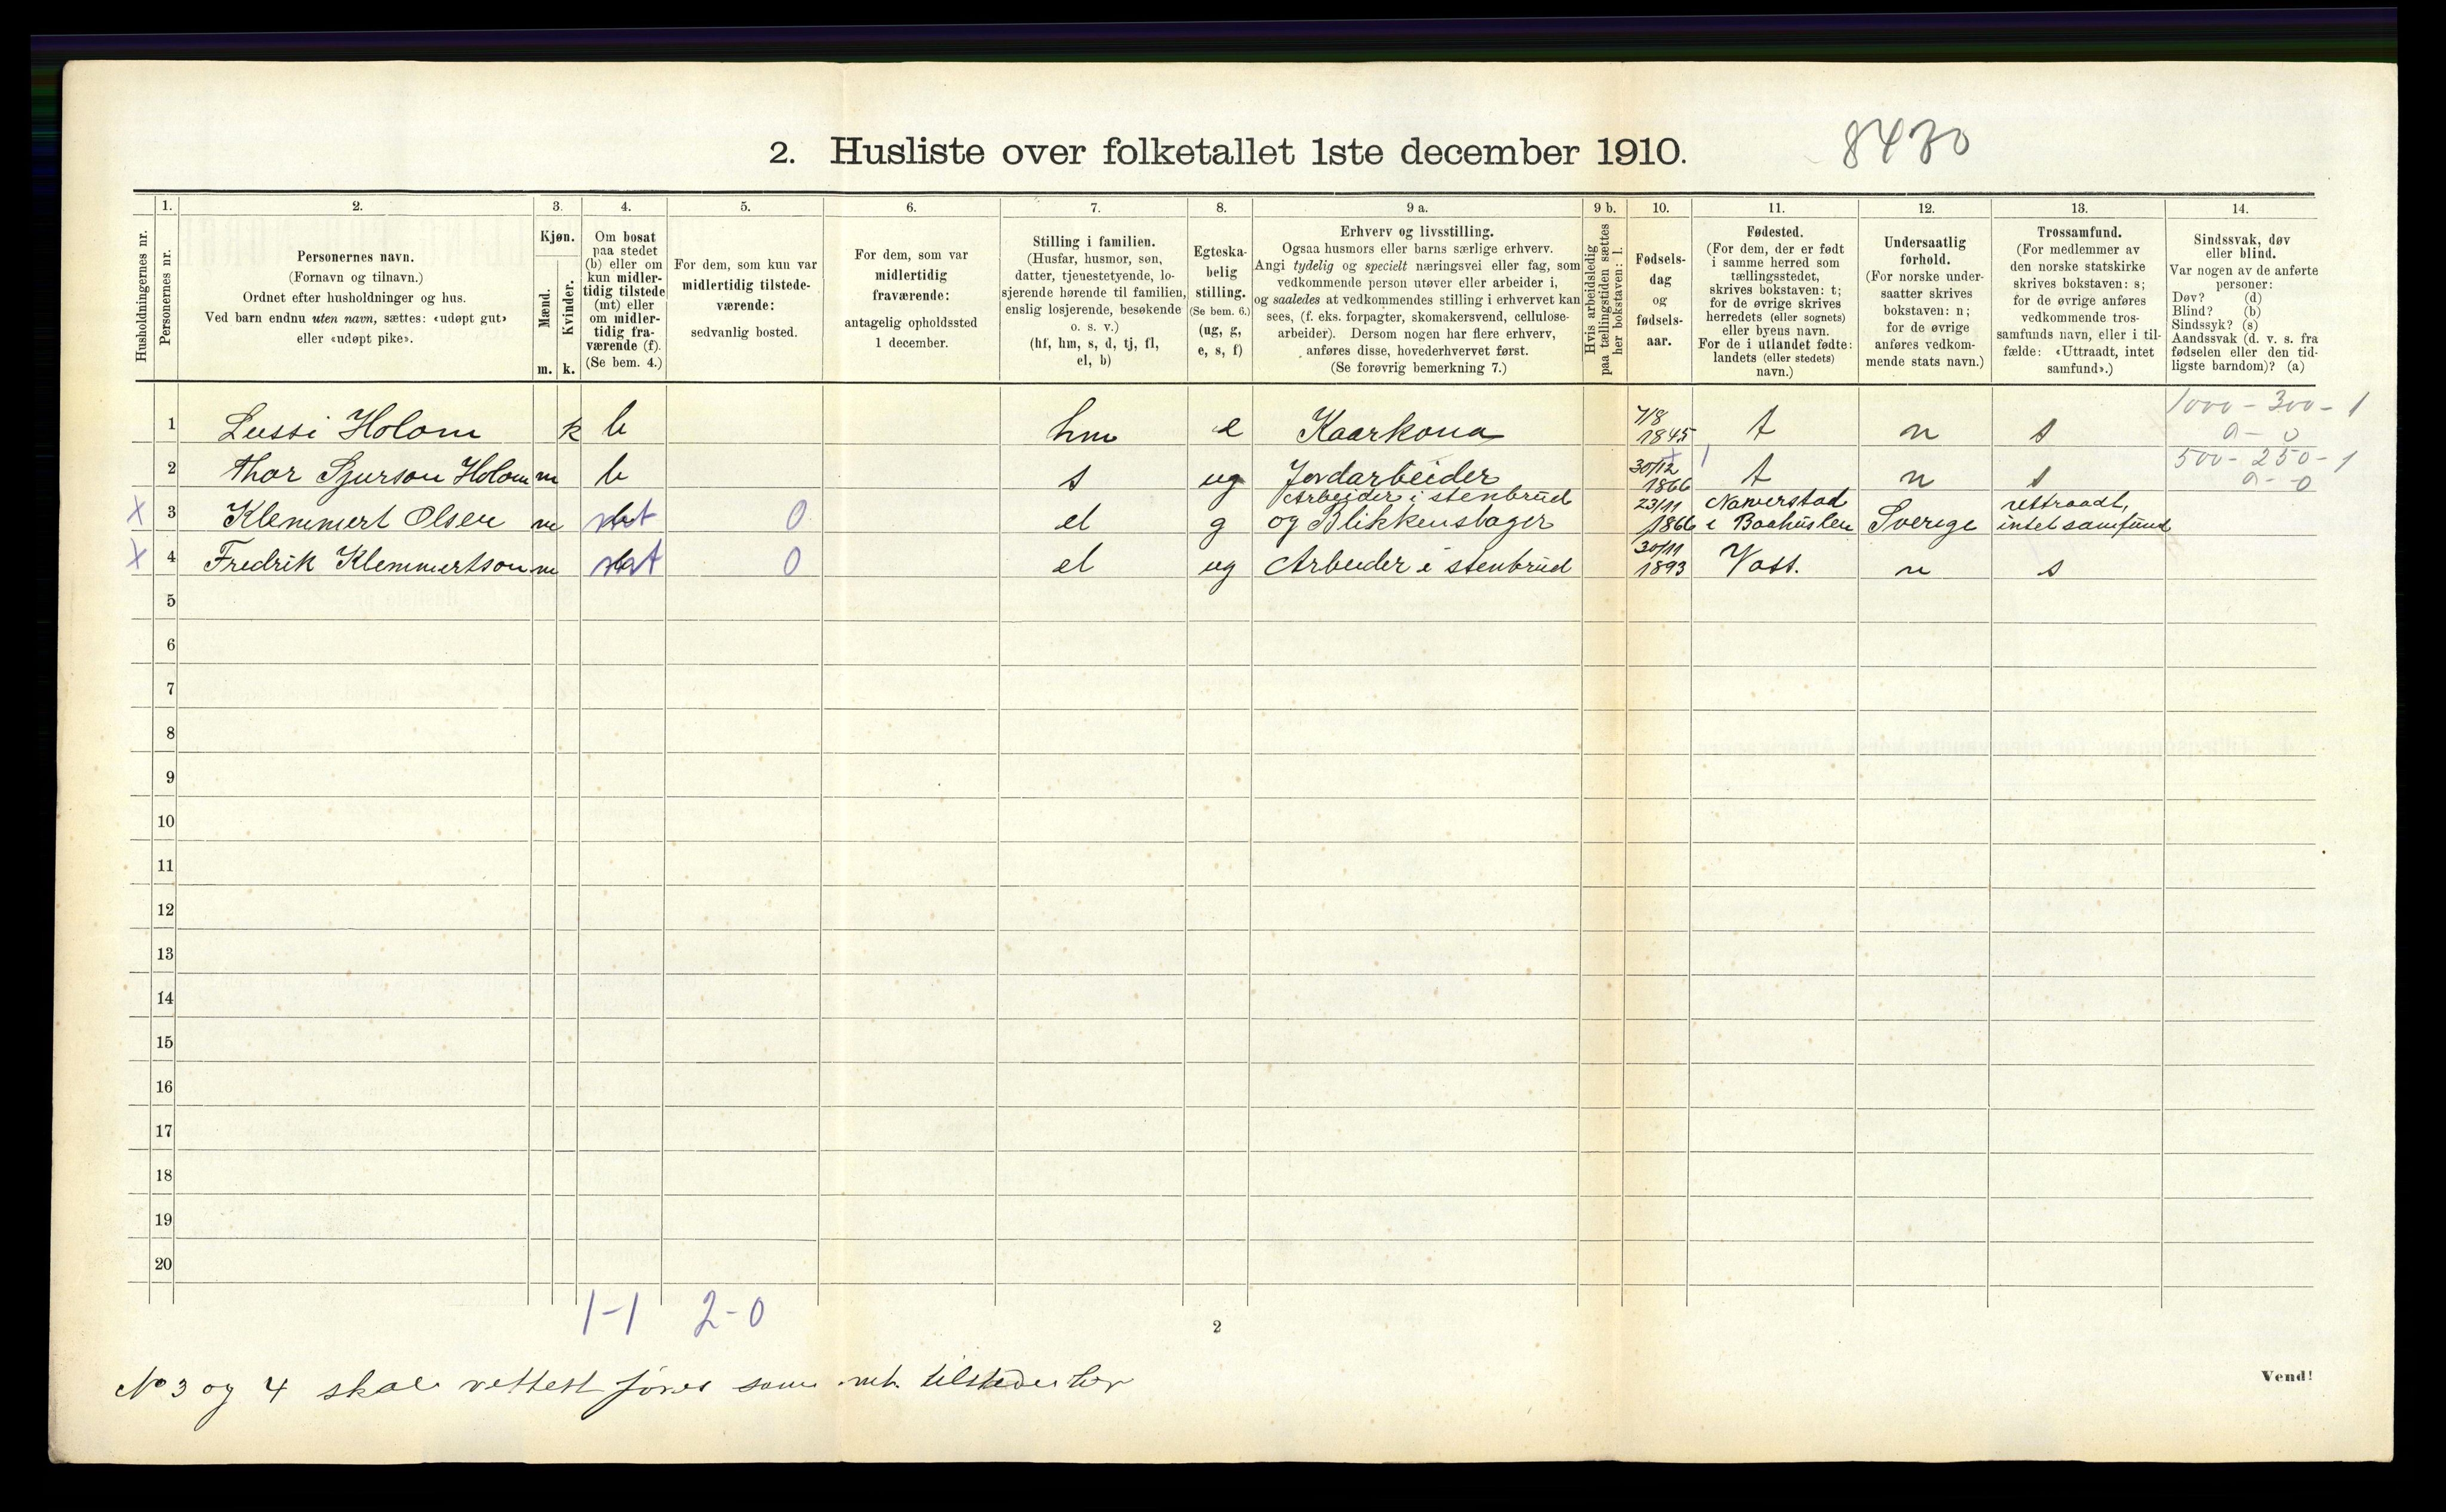 2. Husliste over folketallet 1ste december 1910.
8430
1. 2. 3. 4. 5. 6. 7. 8. 9 a. 9 b. 10. 11. 12. 13. 14.
Husholdningernes nr.
Personernes nr.
Personernes navn.
(Fornavn og tilnavn.)
Ordnet efter husholdninger og hus.
Ved barn endnu uten navn, sættes: «udøpt gut»
eller «udøpt pike».
Kjøn.
Mænd.
Kvinder.
m. k.
Om bosat
paa stedet
(b) eller om
kun midler-
tidig tilstede
(mt) eller
om midler-
tidig fra-
værende (f).
(Se bem. 4.)
For dem, som kun var
midlertidig tilstede-
værende:
sedvanlig bosted.
For dem, som var
midlertidig
fraværende:
antagelig opholdssted
1 december.
Stilling i familien.
(Husfar, husmor, søn,
datter, tjenestetyende, lo-
sjerende hørende til familien,
enslig losjerende, besøkende
o. s. v.)
(hf, hm, s, d, tj, fl,
el, b)
Egteska-
belig
stilling.
(Se bem. 6.)
(ug, g,
e, s, f)
Erhverv og livsstilling.
Ogsaa husmors eller barns særlige erhverv.
Angi tydelig og specielt næringsvei eller fag, som
vedkommende person utøver eller arbeider i,
og saaledes at vedkommendes stilling i erhvervet kan
sees, (f. eks. forpagter, skomakersvend, cellulose-
arbeider). Dersom nogen har flere erhverv,
anføres disse, hovederhvervet først.
(Se forøvrig bemerkning 7.)
Hvis arbeidsledig
paa tællingstiden sættes
her bokstaven: l.
Fødsels-
dag
og
fødsels-
aar.
Fødested.
(For dem, der er født
i samme herred som
tællingsstedet,
skrives bokstaven: t;
for de øvrige skrives
herredets (eller sognets)
eller byens navn.
For de i utlandet fødte:
landets (eller stedets)
navn.)
Undersaatlig
forhold.
(For norske under-
saatter skrives
bokstaven: n;
for de øvrige
anføres vedkom-
mende stats navn.)
Trossamfund.
(For medlemmer av
den norske statskirke
skrives bokstaven: s;
for de øvrige anføres
vedkommende tros-
samfunds navn, eller i til-
fælde: «Uttraadt, intet
samfund».)
Sindssvak, døv
eller blind.
Var nogen av de anførte
personer:
Døv? (d)
Blind? (b)
Sindssyk? (s)
Aandssvak (d. v. s. fra
fødselen eller den tid-
ligste barndom)? (a)
1000 - 300 - 1
0 - 0
1 Lussi Holom k b hm e Kaarkona 7/8 1845 t n s
500 - 250 - 1
0 - 0
2 Thor Sjurson Holom m b s ug Jordarbeider 30/12 1866 t n s
X 3 Klemmert Olsen m mt 0 el g Arbeider i stenbrud og Blikkenslager 23/11 1866 Naverstad i Baahuslen Sverige uttraadt, intet samfund
X 4 Fredrik Klemmertson m mt 0 el ug Arbeider i stenbrud 30/11 1893 Voss. n s
5
6
7
8
9
10
11
12
13
14
15
16
17
18
19
20
1-1 2-0
2
No 3 og 4 skal rettest føres som mt. tilstede her
Vend!